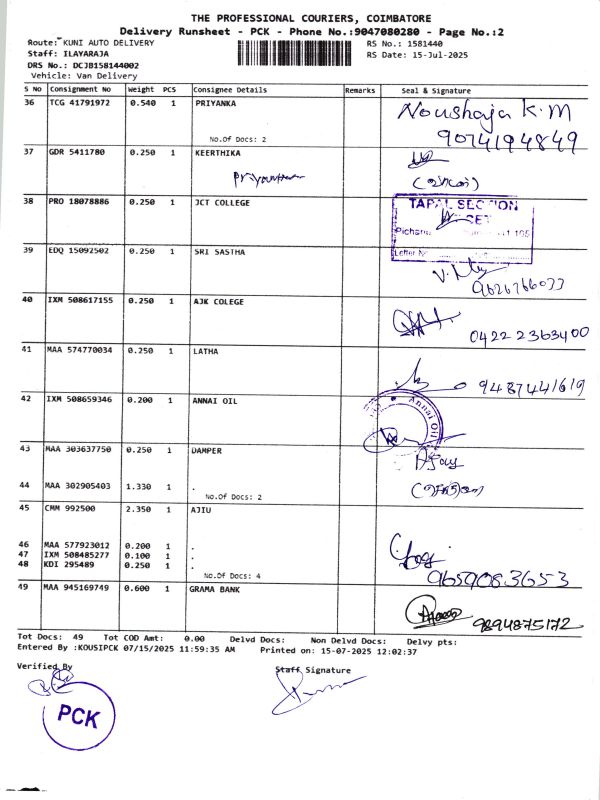 THE PROFESSIONAL COURIERS, COIMBATORE
Delivery Runsheet - PCK - Phone No.:9047080280 - Page No.:2
Route: KUNI AUTO DELIVERY
RS No.: 1581440
Staff: ILAYARAJA
RS Date: 15-Jul-2025
DRS No.: DCJB158144002
Vehicle: Van Delivery
S No Consignment No Weight PCS Consignee Details Remarks Seal & Signature
36 TCG 41791972 0.540 1 PRIYANKA
Noushaja K.M
No.Of Docs: 2
9074194849
37 GDR 5411780 0.250 1 KEERTHIKA
38 PRO 18078886 0.250 1 JCT COLLEGE
TAPAL SECTION
39 EDQ 15092502 0.250 1 SRI SASTHA
Letter No
9626766033
40 IXM 508617155 0.250 1 AJK COLEGE
0422 2363400
41 MAA 574770034 0.250 1 LATHA
9487441619
42 IXM 508659346 0.200 1 ANNAI OIL
Annai Oil
43 MAA 303637750 0.250 1 DAMPER
Ajay
44 MAA 302905403 1.330 1 .
No.Of Docs: 2
45 CMM 992500 2.350 1 AJIU
46 MAA 577923012 0.200 1 .
47 IXM 508485277 0.100 1 .
48 KDI 295489 0.250 1 .
No.Of Docs: 4
9659083653
49 MAA 945169749 0.600 1 GRAMA BANK
9894875172
Tot Docs: 49 Tot COD Amt: 0.00 Delvd Docs: Non Delvd Docs: Delvy pts:
Entered By :KOUSIPCK 07/15/2025 11:59:35 AM Printed on: 15-07-2025 12:02:37
Verified By
Staff Signature
PCK